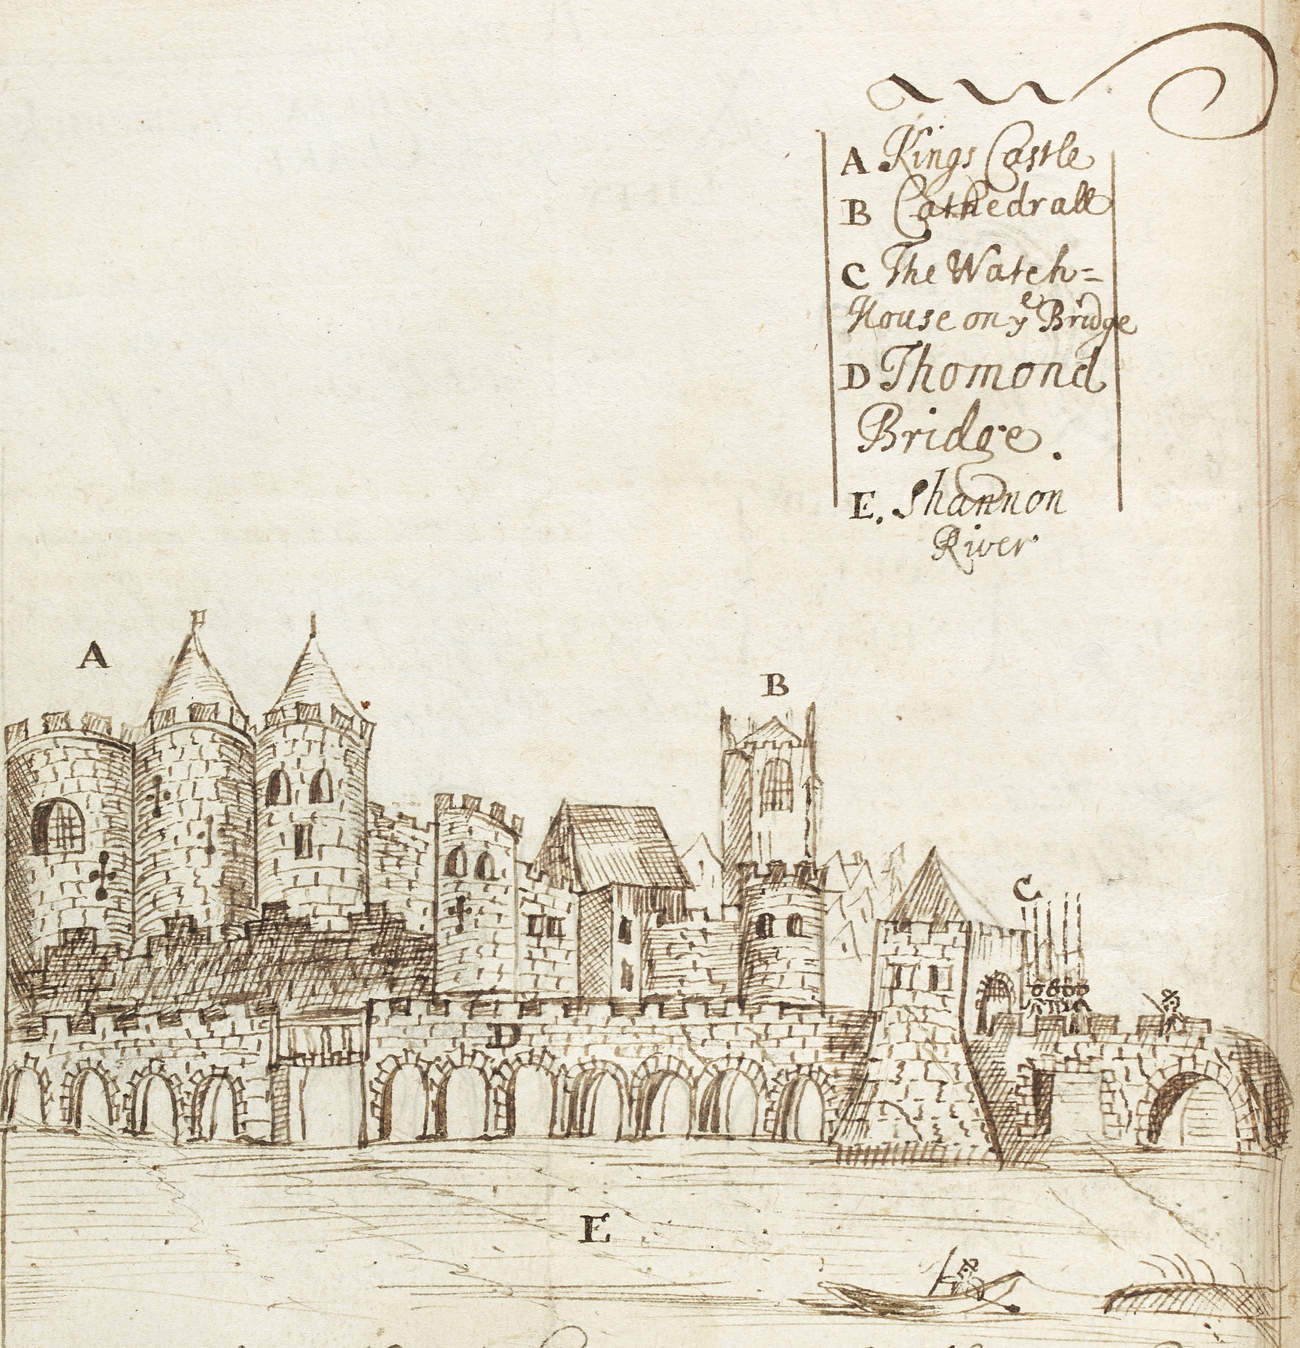 A Kings Castle
B Cathedrall
C The Watch=
House on yᵉ Bridge
D Thomond
Bridge.
E. Shannon
River
A
B
C
D
E